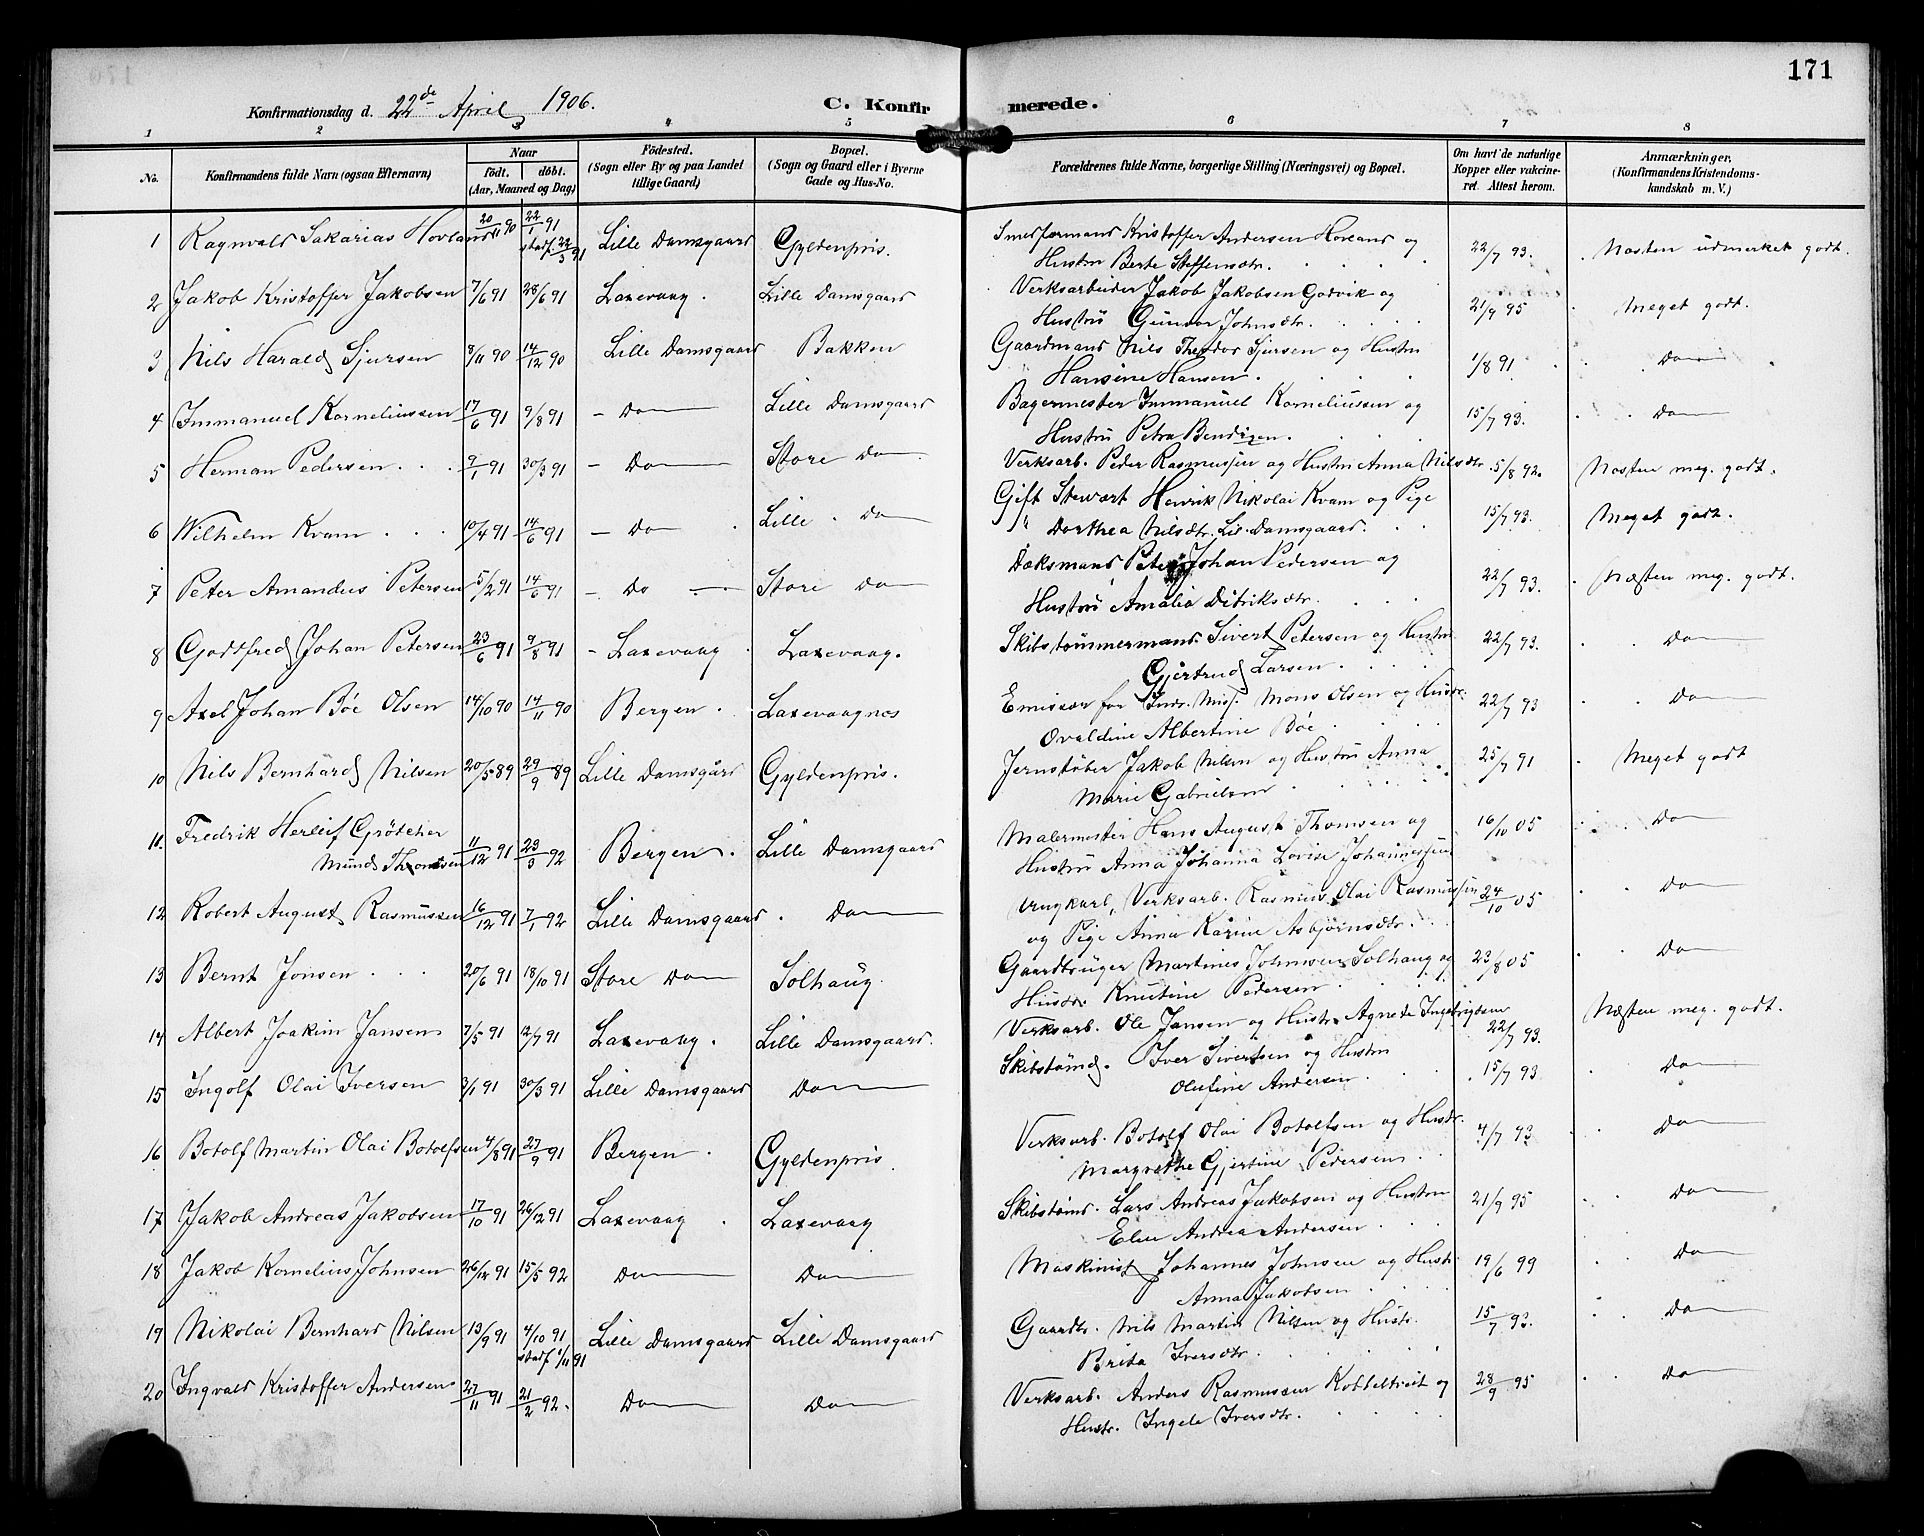 171
Konfirmationsdag d. 22de April 1906.
C. Konfirmerede.
1 2 3 4 5 6 7 8
No. Konfirmandens fulde Navn (ogsaa Efternavn) Naar født. døbt. (Aar, Maaned og Dag) Födested. (Sogn eller By og paa Landet tillige Gaard) Bopæl. (Sogn og Gaard eller i Byerne Gade og Hus-No. Forældrenes fulde Navne, borgerlige Stilling (Næringsvei) og Bopæl. Om havt de naturlige Kopper eller vakcineret. Attest herom. Anmærkninger, (Konfirmandens Kristendomskundskab m. V.)
1 Ragnvald Sakarias Hovland 20/11 90 22/1 91 stadf. 22/3 91 Lille Damsgaard Gyldenpris. Kristoffer Andersen Hovland og 22/7 93. Næsten udmerket godt.
Hustru Berte Steffensdtr.
2 Jakob Kristoffer Jakobsen 7/6 91 28/6 91 Laxevaag. Lille Damsgaard Verksarbeider Jakob Jakobsen Godvik og 21/9 95 Meget godt.
Hustru Gunvor Johnsdtr.
3 Nils Harald Sjursen 8/11 90 14/12 90 Lille Damsgaard Bakken Gaardmand Nils Theodor Sjursen og Hustru 1/8 91 Do
Hansine Hansen.
4 Immanuel Korneliussen 17/6 91 9/8 91 - Do Lille Damsgaard Bagermester Immanuel Korneliussen og 15/7 93. Do
Hustru Petra Bendixen.
5 Herman Pedersen 9/1 91 30/3 91 - Do Store Do Verksarb. Peder Rasmussen og Hustru Anna Nilsdtr. 5/8 92. Næsten meg. godt.
6 Wilhelm Kvam 10/4 91 14/6 91 - Do Lille Do Gift Stewart Henrik Nikolai Kvam og Pige 15/7 93. Meget godt.
" Dorthea Nilsdtr. Lil. Damsgaard.
7 Peter Amandus Petersen 5/2 91 14/6 91 - Do Store Do Dæksmand Peter Johan Pedersen og 22/7 93. Næsten meg. godt.
Hustru Amalia Didriksdtr.
8 Godtfred Johan Petersen 23/6 91 9/8 91 - Laxevaag Laxevaag. Skibstømmermand Sivert Petersen og Hustru 22/7 93. Do
Gjertrud Larsen
9 Axel Johan Bôe Olsen 14/10 90 14/11 90 Bergen. Laxevaagnes Emissær for Indr. Mis. Mons Olsen og Hustr. 22/7 93 Do
Ovaldine Albertine Bôe.
10 Nils Bernhard Nilsen 20/5 89 29/9 89 Lille Damsgård Gyldenpris. Jernstøber Jakob Nilsen og Hustru Anna 25/7 91 Meget godt
Marie Gabrielsen
11. Fredrik Herleif Grötcher Bergen. Lille Damsgaard Malermester Hans August Thomsen og 16/10 05 Do
Mund Thomsen 11/12 91 23/3 92 Hustru Anna Johanna Lovise Johannessen
12 Robert August Rasmussen 16/12 91 7/1 92 Lille Damsgaard. Do Ungkarl, Verksarb. Rasmus Olai Rasmussen 24/10 05 Do
og Pige Anna Karine Asbjørnsdtr.
13 Bernt Jonsen 20/6 91 18/10 91 Store Do Solhaug. Gaardbruger Martines Johnsen Solhaug og 23/8 05 Do
Hustr. Knutine Pedersen
14 Albert Joakim Jansen 7/5 91 12/7 91 Laxevaag. Lille Damsgaard. Verksarb. Ole Jansen og Hustr. Agnete 22/7 93. Næsten meg. godt.
15 Ingolf Olai Iversen 3/1 91 30/3 91 Lille Damsgaard Do Skibstømd. Iver Sivertsen og Hustru 15/7 93 Do
Olufine Andersen
16 Botolf Martin Olai Botolfsen 4/8 91 27/9 91 Bergen Gyldenpris. Verksarb. Botolf Olai Botolfsen og Hustr. 4/7 93. Do
Margrethe Gjertine Pedersen
17 Jakob Andreas Jakobsen 17/10 91 26/12 91 Laxevaag Laxevaag Skibstømd. Lars Andreas Jakobsen og Hustru 21/9 95 Do
Elen Andrea Andersen
18 Jakob Kornelius Johnsen 26/12 91 15/5 92 Do Do Maskinist Johannes Johnsen og Hustr. 19/6 99 Do
Anna Jakobsen
19 Nikolai Bernhard Nilsen 13/9 91 4/10 91 stadf 1/11 91 Lille Damsgaard Lille Damsgaard Gaardbr. Nils Martin Nilsen og Hustr. 15/7 93. Do
Brita Iversdtr.
20 Ingvald Kristoffer Andersen 27/11 91 21/2 92. Do Do Verksarb. Anders Rasmussen Kobbeltveit og 28/9 95 Do
Hustr. Ingele Iversdtr.